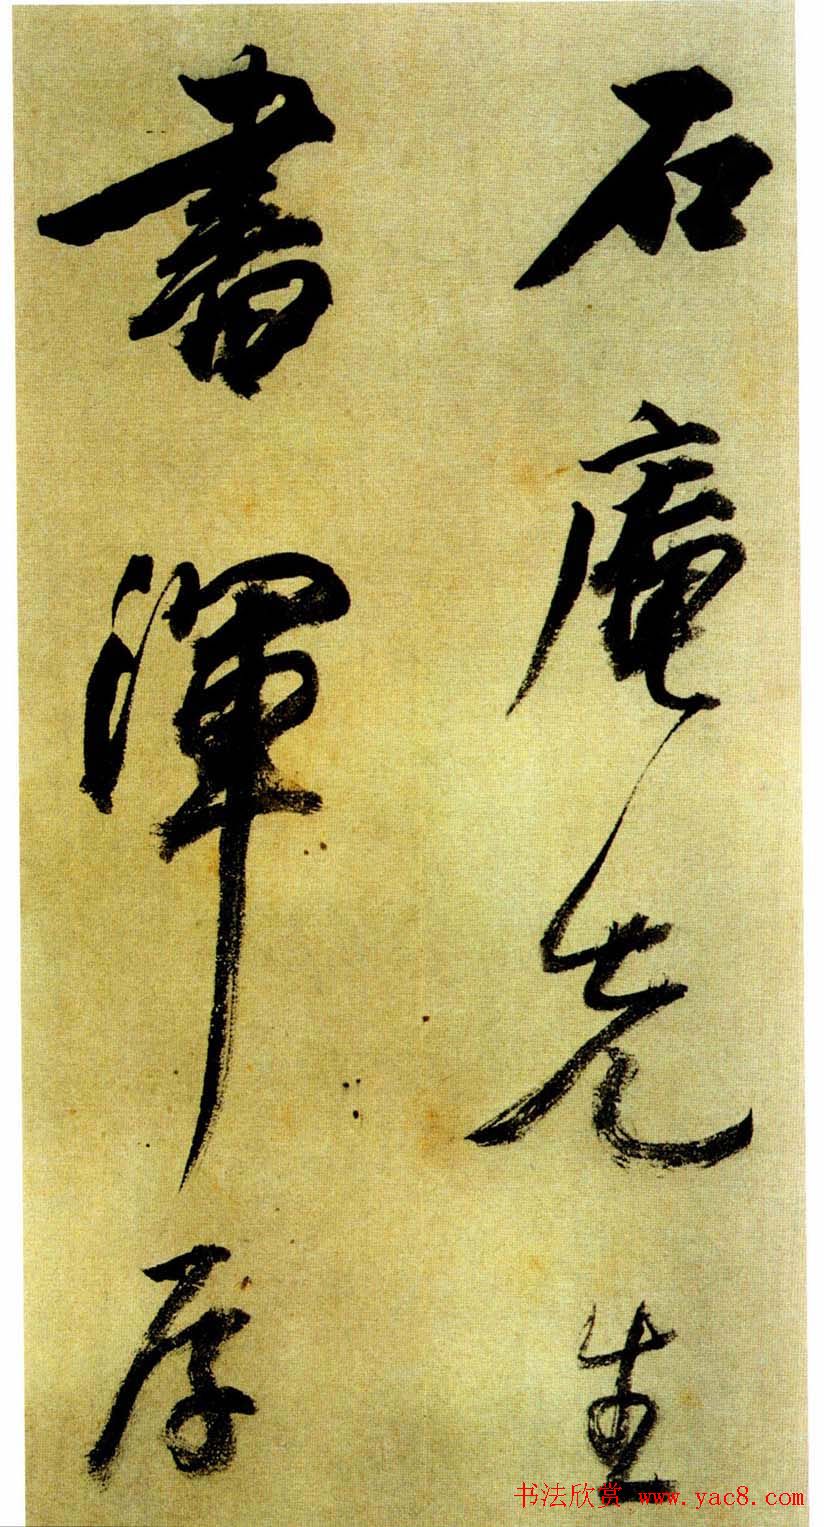 石庵先生
書渾厚
书法欣赏 www.yac8.com